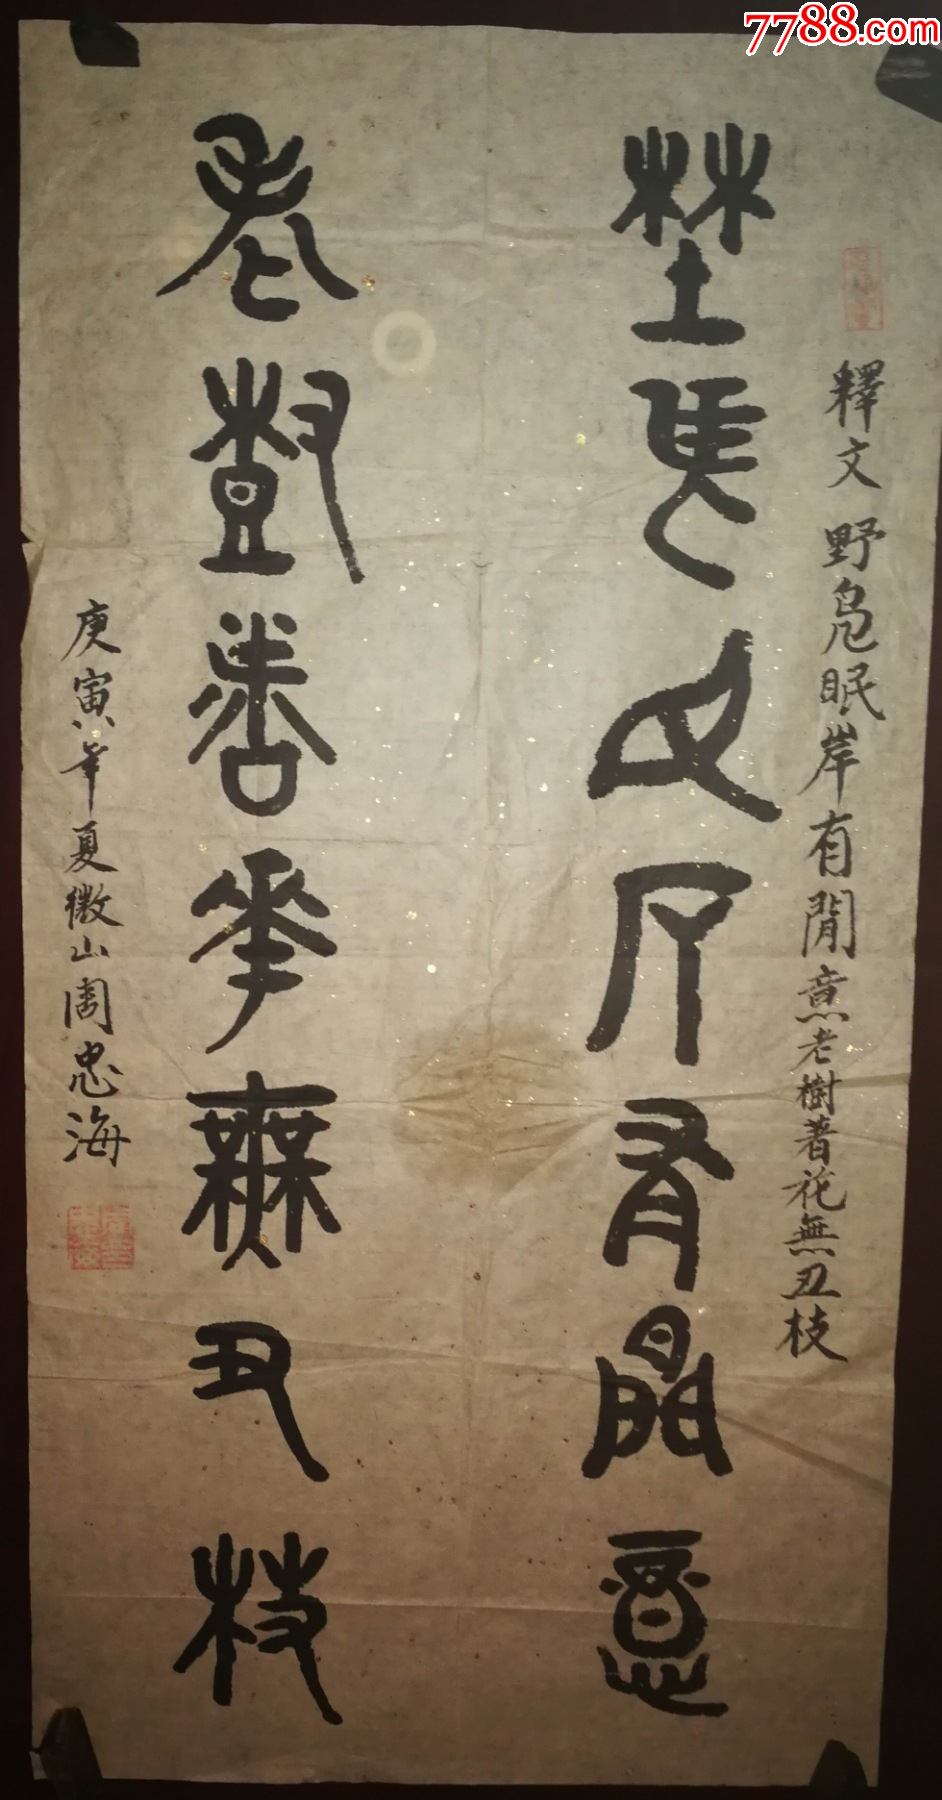 7788.com
釋文 野鳧眠岸有閒意老樹著花無丑枝
埜鳧眠岸有閒意
老樹著華無丑枝
庚寅年夏微山周忠海